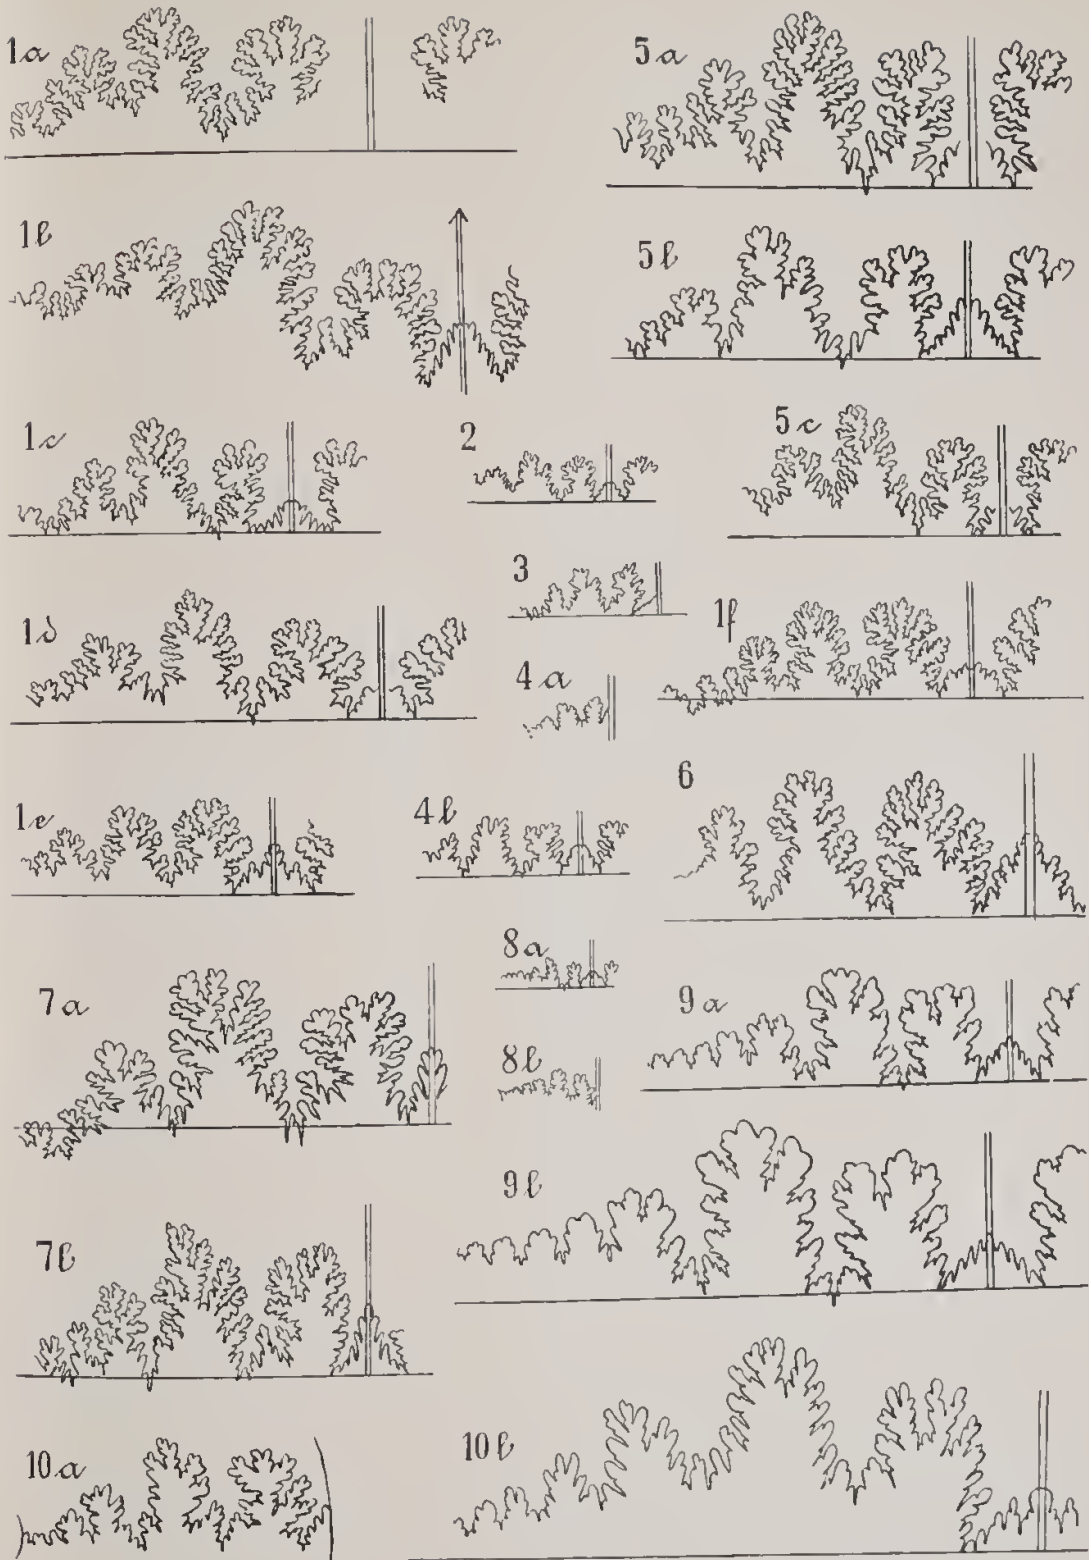 1a
5a
1b
5b
1c
2
5c
3
1d
1f
4a
6
1e
4b
8a
7a
9a
8b
9b
7b
10a
10b